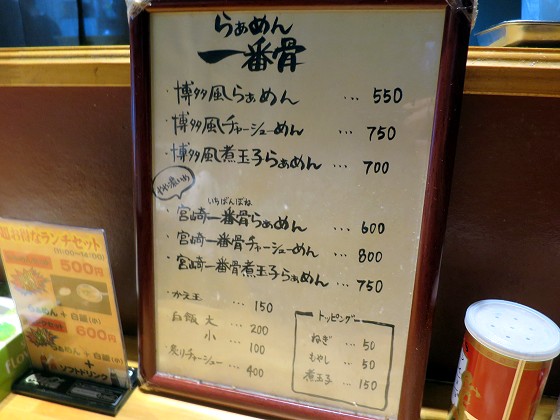 らぁめん
一番骨
・博多風らぁめん … 550
・博多風チャーシューめん … 750
・博多風煮玉子らぁめん … 700
やや濃いめ
いちばんぼね
・宮崎一番骨らぁめん … 600
・宮崎一番骨チャーシューめん … 800
・宮崎一番骨煮玉子らぁめん … 750
・かえ玉 … 150
白飯 大 … 200
小 … 100
・炙りチャーシュー … 400
トッピング
ねぎ … 50
もやし … 50
煮玉子 … 150
お得なランチセット
500円
らぁめん + 白飯(中)
600円
らぁめん + 白飯(中)
+
ソフトドリンク